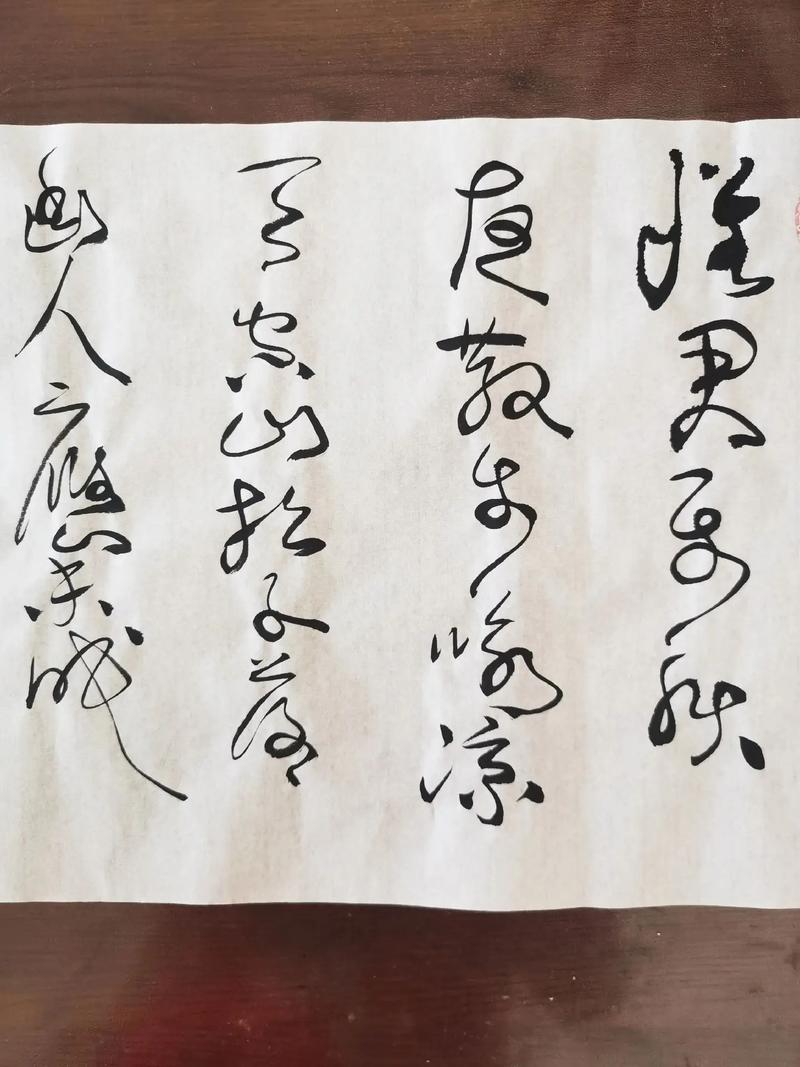 懷君属秋
夜散步咏凉
天空山松子落
幽人應未眠